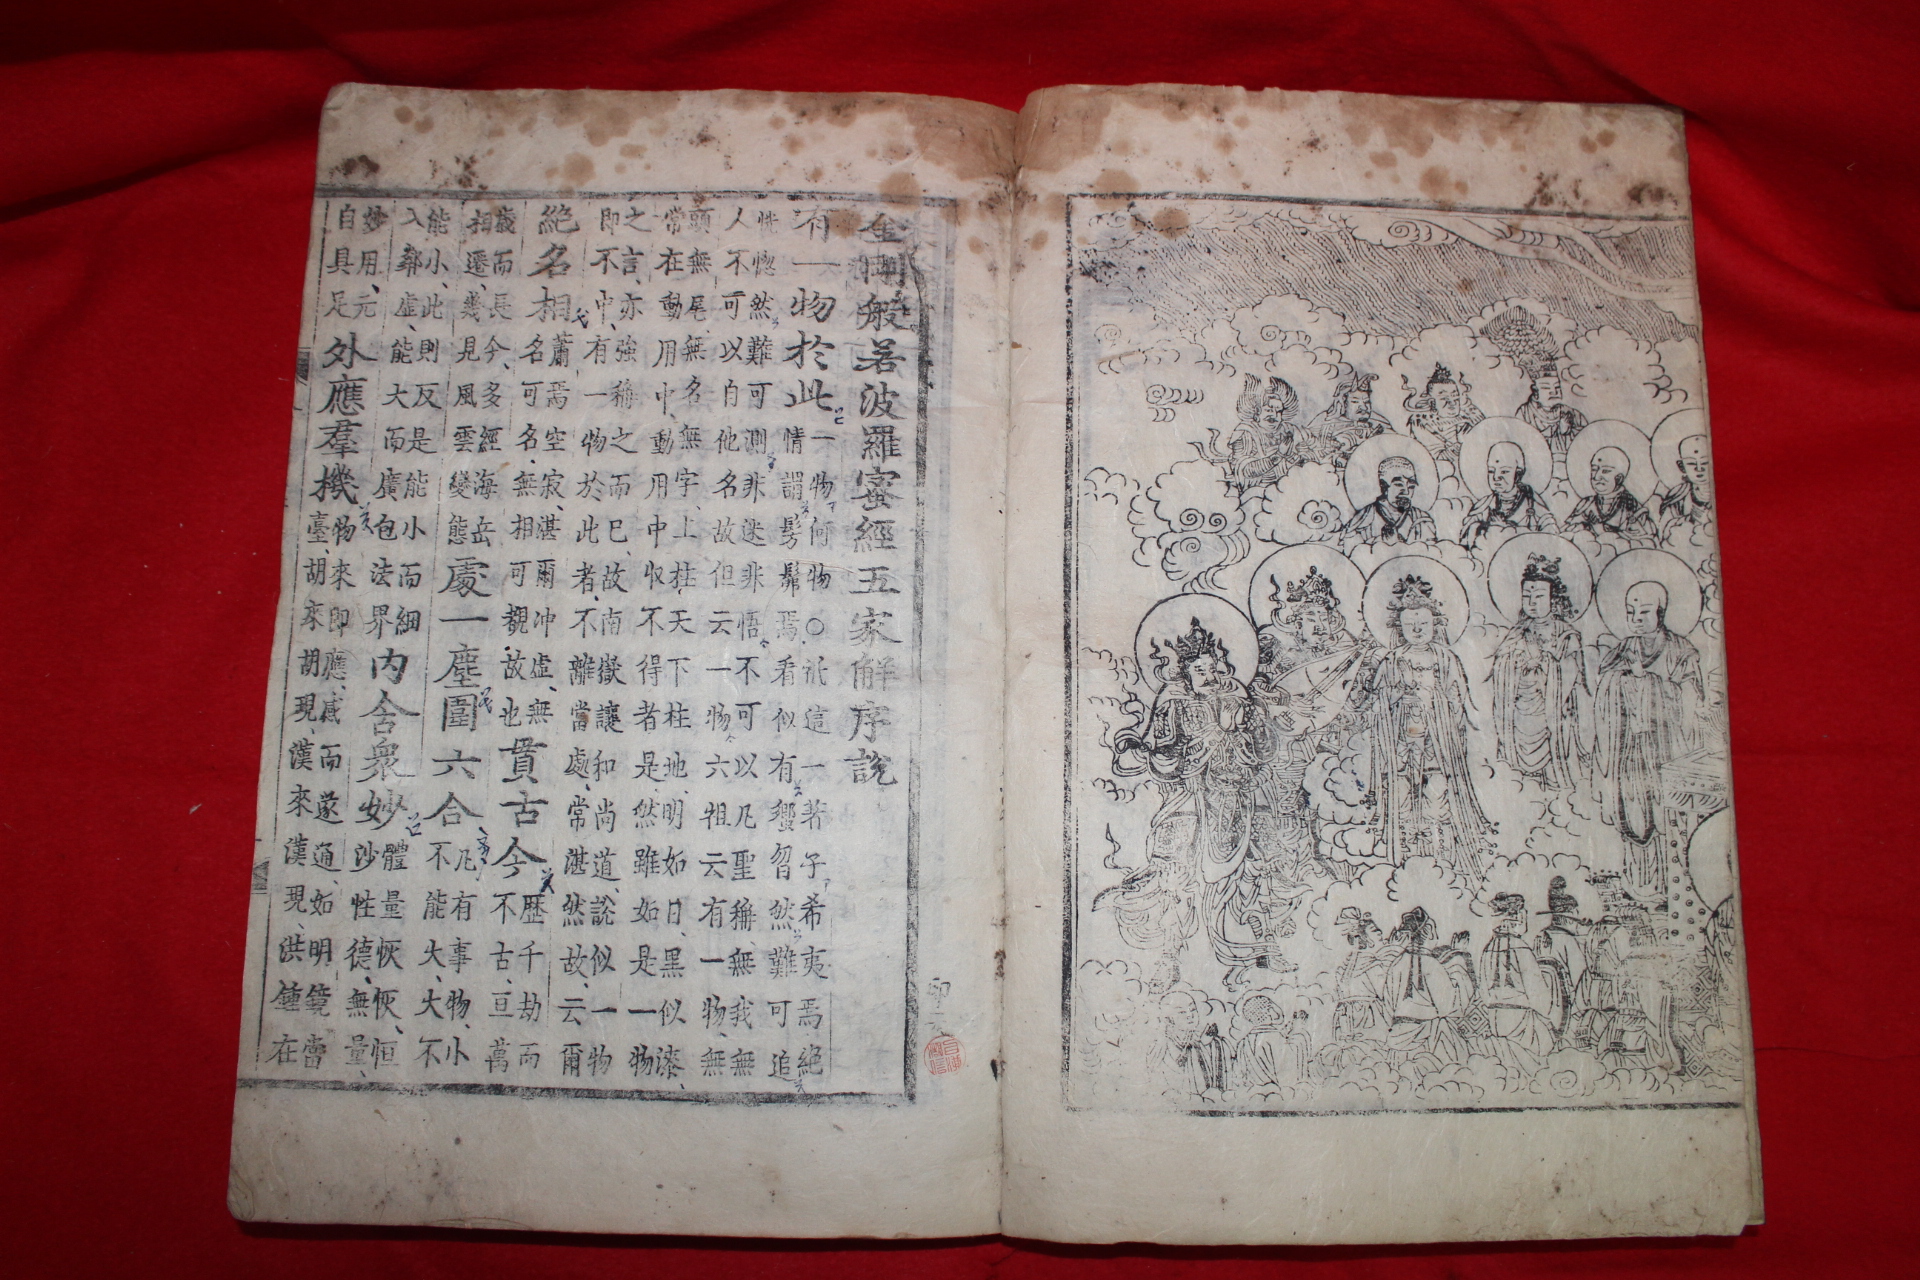 金剛般若波羅蜜經五家解序說
有一物於此
一物何物○祇這一著子希夷焉絕
情謂髣髴焉看似有蠁曶然難可追
恍惚然難可測非迷非悟不可以凡聖稱、無我無
人不可以自他名故但云一物六祖云有一物、無
頭無尾、無名無字、上柱天下柱地、明如日、黑似漆、
常在動用中、動用中収不得者是、然雖如是一物
之言、亦強稱之而已、故南嶽讓和尚道、說似一物
即不中、有一物於此者、不離當處、常湛然故、云爾
絕名相
蕭焉空寂、湛爾冲虛、無
名可名、無相可覩、故也
貫古今
歷千劫而
不古、亘萬
歲而長今、多經海岳
相遷、幾見風雲變態
處一塵圍六合
凡有事物、小
不能大、大不
能小、此則反是能小而細
入鄰虛、能大而廣包法界
內含衆妙
體量恢恢、恒
沙性德、無量、
妙用、元
自具足
外應羣機
物來即應、感而遂通、如明鏡當
臺、胡來胡現、漢來漢現、洪鍾在